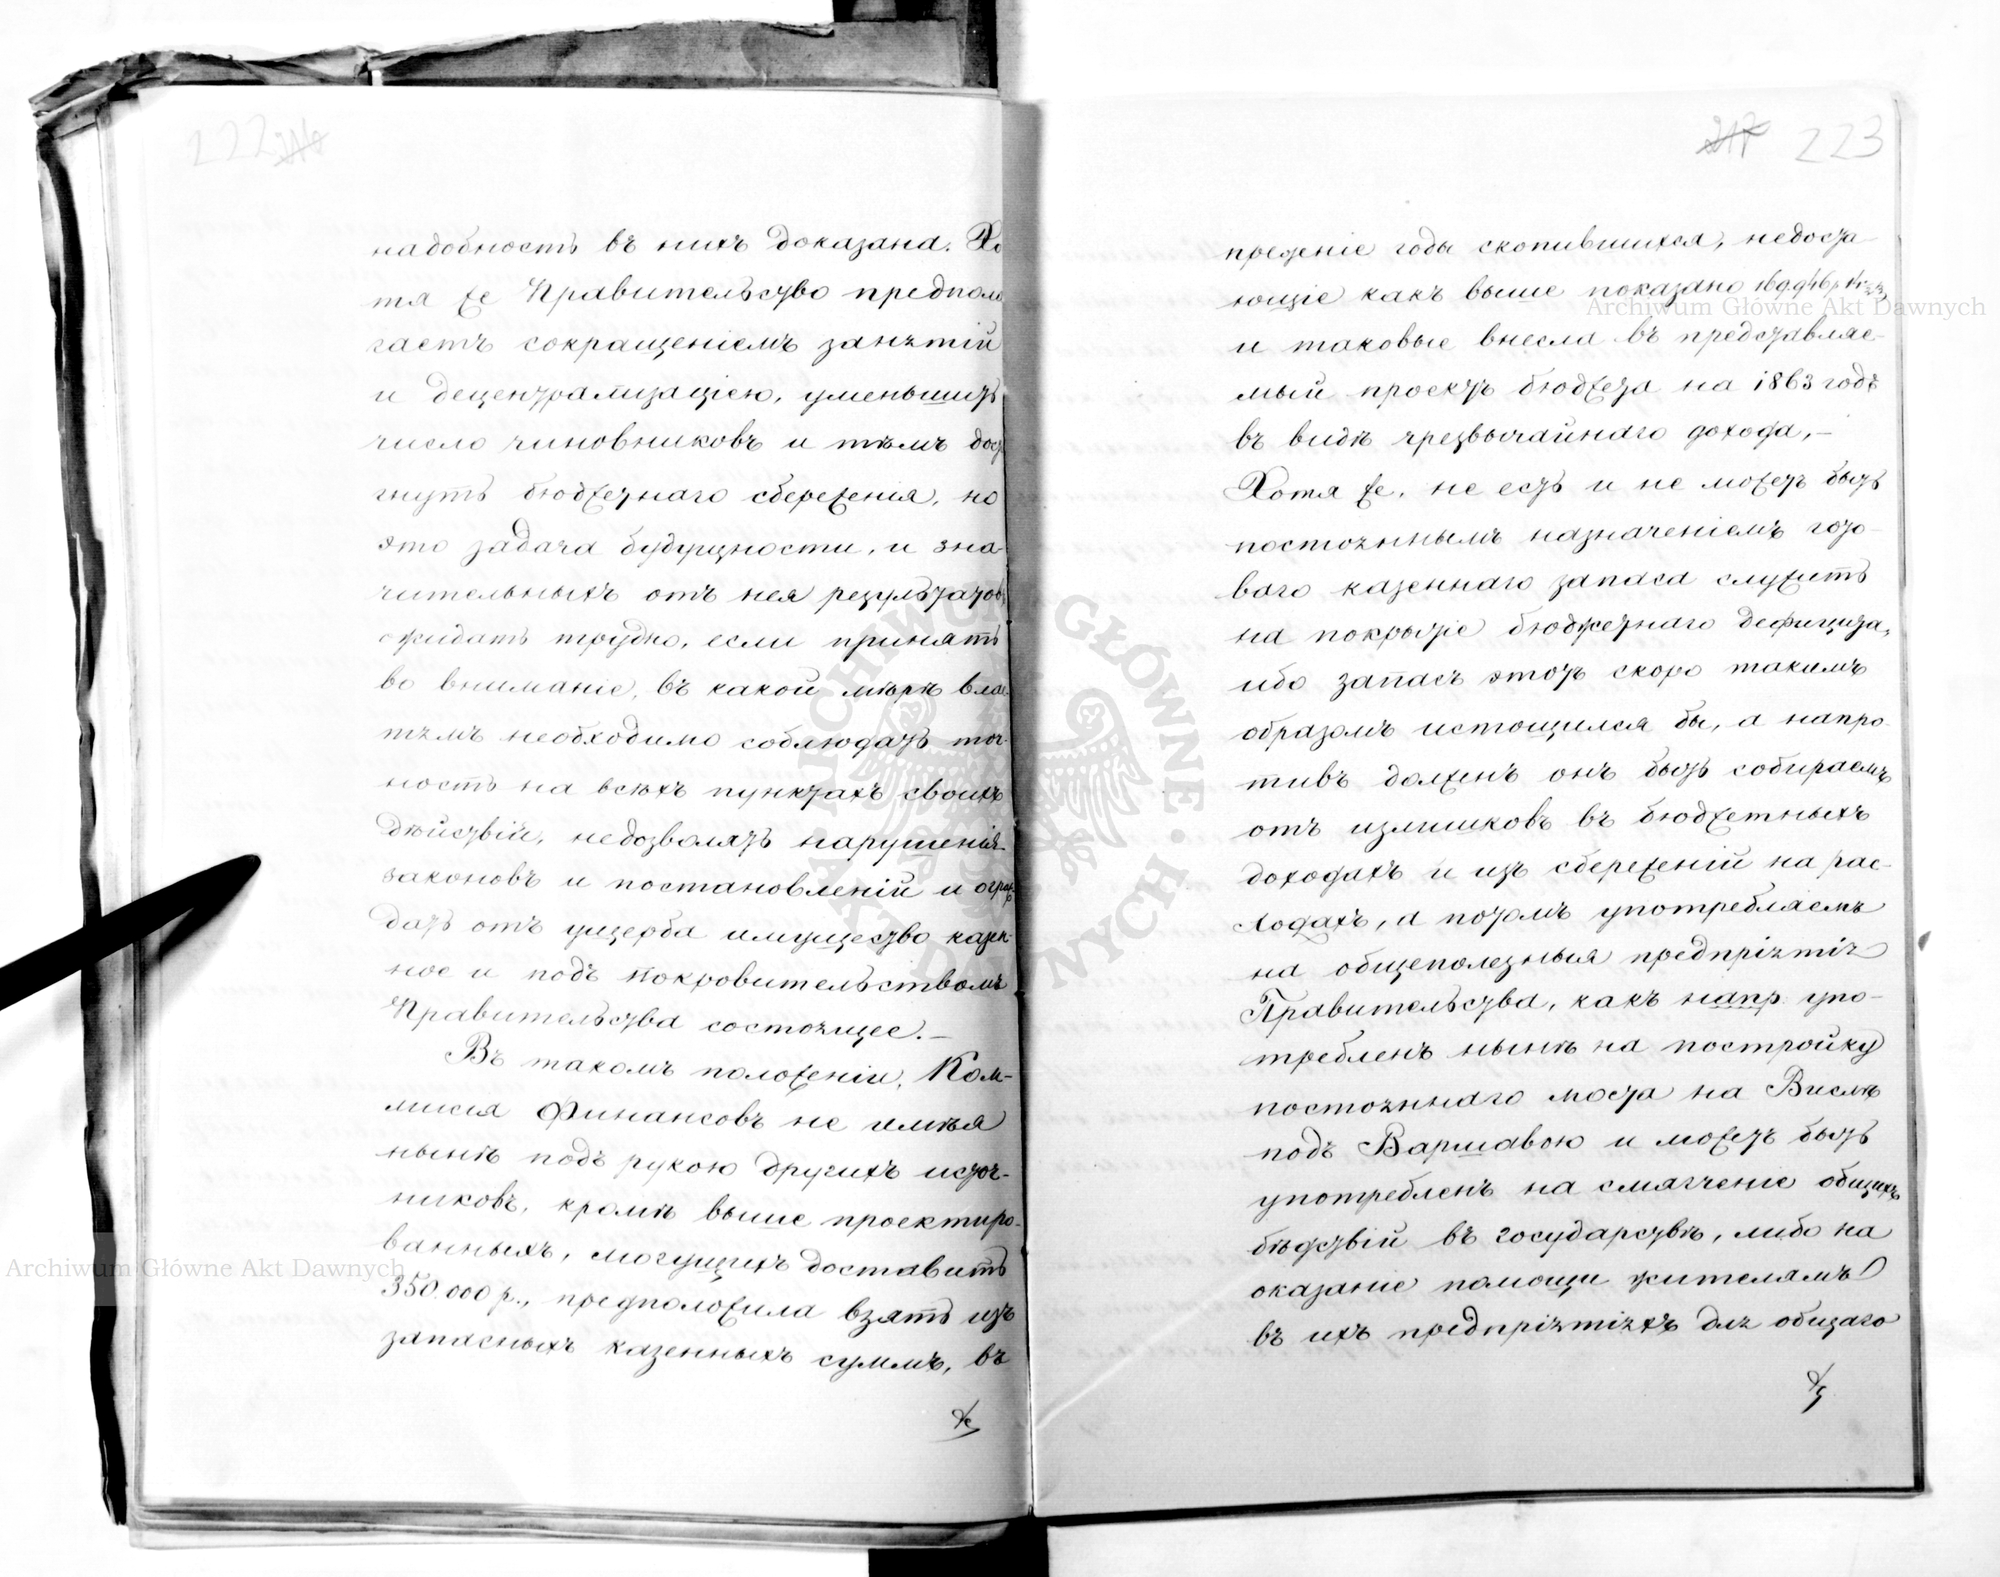 222
надобность въ нихъ доказана. Хо
тя же Правительство предпола
гаетъ сокращеніемъ занятій
и децентрализаціею, уменьшить
число чиновниковъ и тѣмъ дос
гнуть бюджетнаго сбереженія, но
это задача будущности, и зна-
чительныхъ отъ нея результатовъ
ожидать трудно, если принять
во вниманіе, въ какой мѣрѣ влас
тямъ необходимо соблюдать точ-
ность на всѣхъ пунктахъ своихъ
дѣйствій, недозволять нарушенія
законовъ и постановленій и ограж
дать отъ ущерба имущество казен-
ное и подъ покровительствомъ
Правительства состоящее.—
Въ такомъ положеніи, Ком-
мисія Финансовъ не имѣя
нынѣ подъ рукою другихъ источ-
никовъ, кромѣ выше проектиро-
ванныхъ, могущихъ доставить
350.000 р., предположила взять изъ
запасныхъ казенныхъ суммъ, въ
217 223
прежніе годы скопившихся, недоста-
ющіе какъ выше показано
и таковые внесла въ представляе-
мый проектъ бюджета на 1863 годъ
въ видѣ чрезвычайнаго дохода,—
Хотя же, не есть и не можетъ быть
постояннымъ назначеніемъ гото-
ваго казеннаго запаса служить
на покрытіе бюджетнаго дефицита,
ибо запасъ этотъ скоро такимъ
образомъ истощился бы, а напро-
тивъ долженъ онъ быть собираемъ
отъ излишковъ въ бюджетныхъ
доходахъ и изъ сбереженій на рас-
ходахъ, а потомъ употребляемъ
на общеполезныя предпріятія
Правительства, какъ напр. упо-
требленъ нынѣ на постройку
постояннаго моста на Вислѣ
подъ Варшавою и можетъ быть
употребленъ на смягченіе общихъ
бѣдствій въ государствѣ, либо на
оказаніе помощи жителямъ
въ ихъ предпріятіяхъ для общаго
Archiwum Główne Akt Dawnych
Archiwum Główne Akt Dawnych
ARCHIWUM GŁÓWNE AKT DAWNYCH